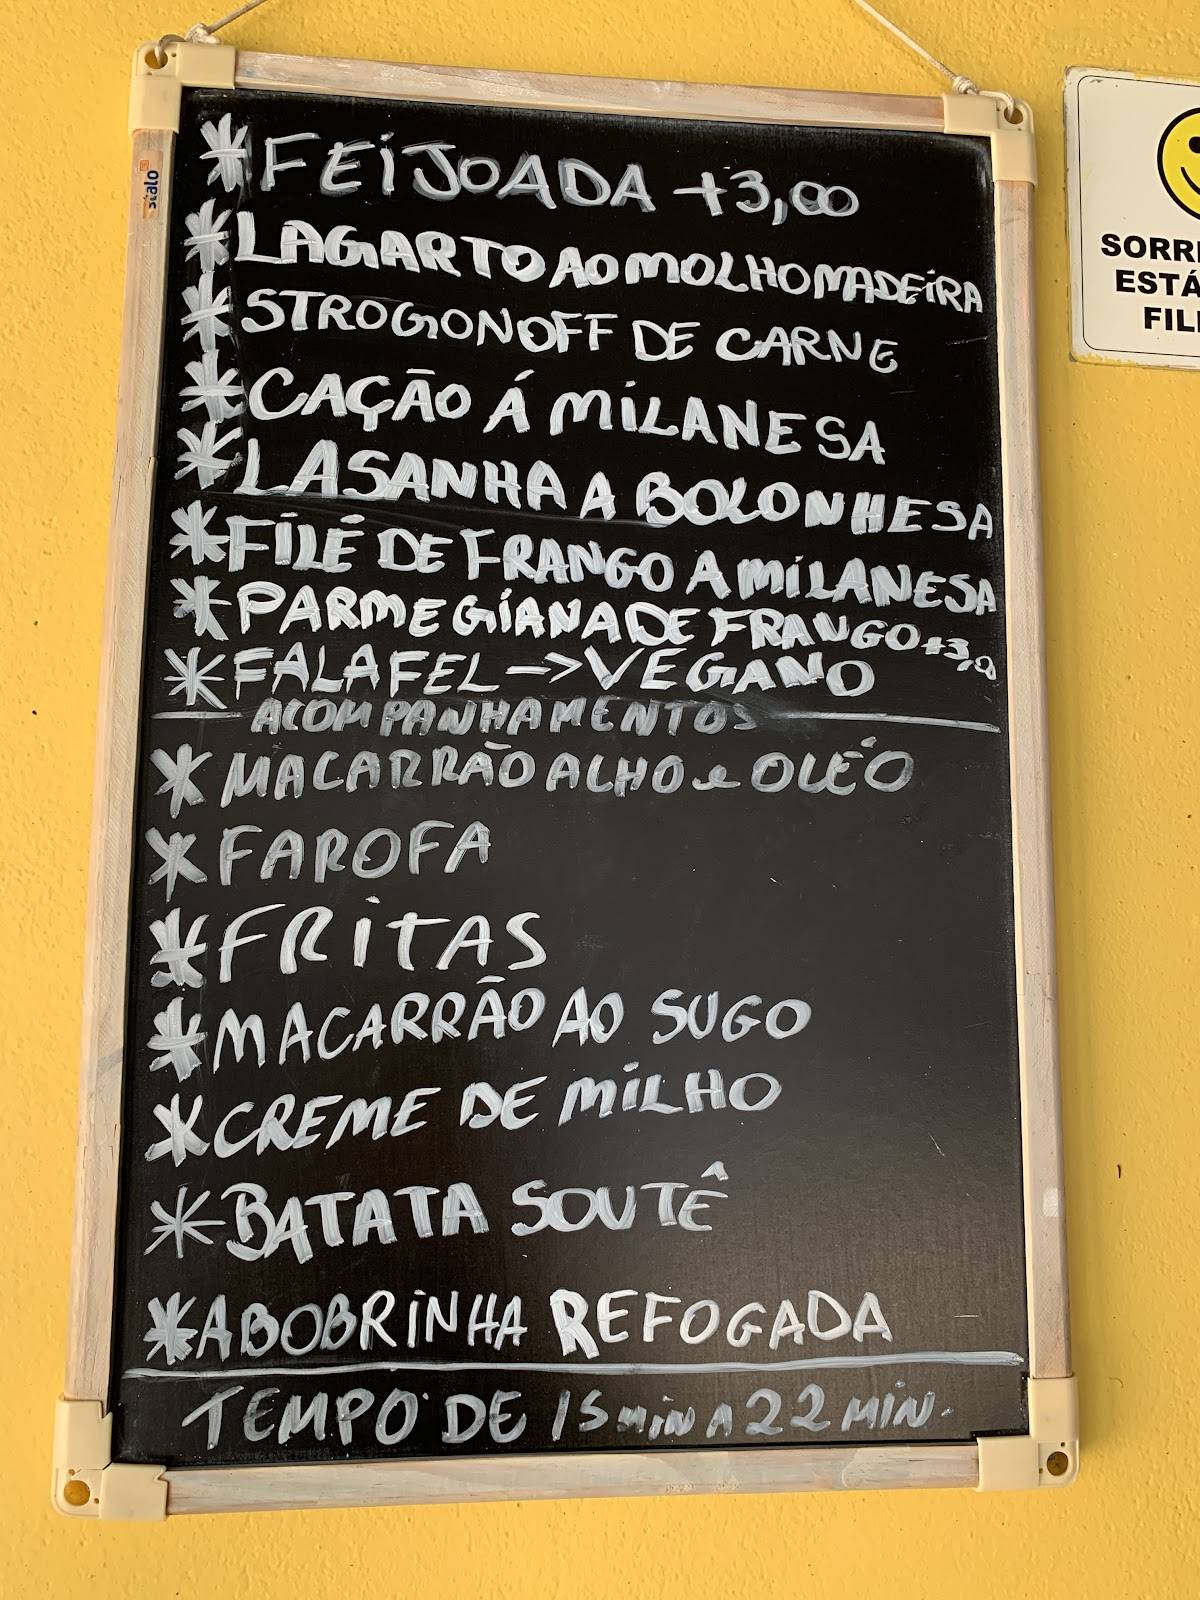 stalo
* FEIJOADA +3,00
* LAGARTO AO MOLHO MADEIRA
* STROGONOFF DE CARNE
* CAÇÃO Á MILANESA
* LASANHA A BOLONHESA
* FILÉ DE FRANGO A MILANESA
* PARMEGIANA DE FRANGO +3,00
* FALAFEL -> VEGANO
ACOMPANHAMENTOS
* MACARRÃO ALHO e OLÉO
* FAROFA
* FRITAS
* MACARRÃO AO SUGO
* CREME DE MILHO
* BATATA SOUTÊ
* ABOBRINHA REFOGADA
TEMPO DE 15 MIN A 22 MIN.
SORRI
ESTÁ
FIL